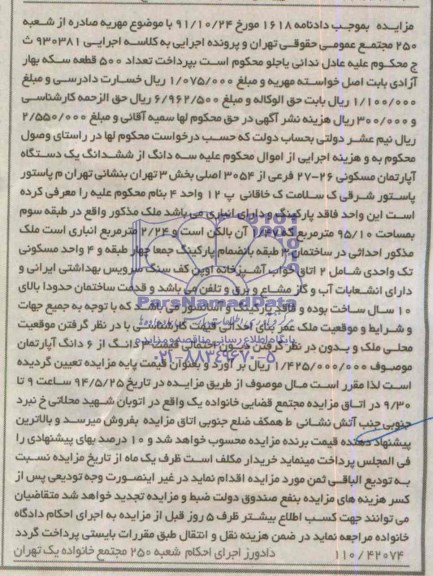 مزایده بموجب دادنامه ۱۶۱۸ مورخ ۹۱/۱۰/۲۴ با موضوع مهریه صادره از شعبه
۲۵۰ مجتمع عمومی حقوقی تهران و پرونده اجرایی به کلاسه اجرایی ۹۳۰۳۸۱ ث
ج محکوم علیه عادل ندائی یاجلو محکوم است بپرداخت تعداد ۵۰۰ قطعه سکه بهار
آزادی بابت اصل خواسته مهریه و مبلغ ۱/۰۷۵/۰۰۰ ریال خسارت دادرسی و مبلغ
۱/۱۰۰/۰۰۰ ریال بابت حق الوکاله و مبلغ ۶/۹۶۲/۵۰۰ ریال حق الزحمه کارشناسی
و ۳۰۰/۰۰۰ ریال هزینه نشر آگهی در حق محکوم لها سمیه آقائی و مبلغ ۲/۵۵۰/۰۰۰
ریال نیم عشر دولتی بحساب دولت که حسب درخواست محکوم لها در راستای وصول
محکوم به و هزینه اجرایی از اموال محکوم علیه سه دانگ از ششدانگ یک دستگاه
آپارتمان مسکونی ۲۶-۲۷ فرعی از ۳۰۵۴ اصلی بخش ۳ تهران بنشانی تهران م پاستور
پاستور شرقی ک سلامت ک خاقانی پ ۱۲ واحد ۴ بنام محکوم علیه را معرفی کرده
است این واحد فاقد پارکینگ و دارای انباری می باشد ملک مذکور واقع در طبقه سوم
بمساحت ۹۵/۱۰ مترمربع که ۱/۴۷ آن بالکن است و ۲/۲۴ مترمربع انباری است ملک
مذکور احداثی در ساختمان ۴ طبقه بانضمام پارکینگ جمعا چهار طبقه و ۴ واحد مسکونی
تک واحدی شامل ۲ اتاق خواب آشپزخانه اوپن کف سنگ سرویس بهداشتی ایرانی و
دارای انشعابات آب و گاز مشاع و برق و تلفن می باشد و قدمت ساختمان حدودا بالای
۱۰ سال ساخت بوده و فاقد پارکینگ و آسانسور می باشد که با توجه به جمیع جهات
و شرایط و موقعیت ملک عمر بنای احداثی قیمت کارشناسی با در نظر گرفتن موقعیت
محلی ملک و بدون در نظر گرفتن دیون احتمالی قیمت ۳ دانگ از ۶ دانگ آپارتمان
موصوف ۱/۴۲۵/۰۰۰/۰۰۰ ریال برآورد و بعنوان قیمت پایه مزایده تعیین گردیده
است لذا مقرر است مال موصوف از طریق مزایده در تاریخ ۹۴/۵/۲۵ ساعت ۹ تا
۹/۳۰ در اتاق مزایده مجتمع قضایی خانواده یک واقع در اتوبان شهید محلاتی خ نبرد
جنوبی جنب آتش نشانی ط همکف ضلع جنوبی اتاق مزایده بفروش میرسد و بالاترین
پیشنهاد دهنده قیمت برنده مزایده محسوب خواهد شد و ۱۰ درصد بهای پیشنهادی را
فی المجلس پرداخت مینماید خریدار مکلف است ظرف یک ماه از تاریخ مزایده نسبت
به تودیع الباقی ثمن مورد مزایده اقدام نماید در غیر اینصورت وجه تودیعی پس از
کسر هزینه های مزایده بنفع صندوق دولت ضبط و مزایده تجدید خواهد شد متقاضیان
می توانند جهت کسب اطلاع بیشتر ظرف ۵ روز قبل از مزایده به اجرای احکام دادگاه
خانواده مراجعه نماید در ضمن هزینه نقل و انتقال طبق مقررات بایستی پرداخت گردد
۱۱۰/۴۲۰۷۴ دادورز اجرای احکام شعبه ۲۵۰ مجتمع خانواده یک تهران
ParsNamadData
پایگاه اطلاع رسانی مناقصه و مزایده
۰۲۱-۸۸۳۴۹۶۷۰-۵